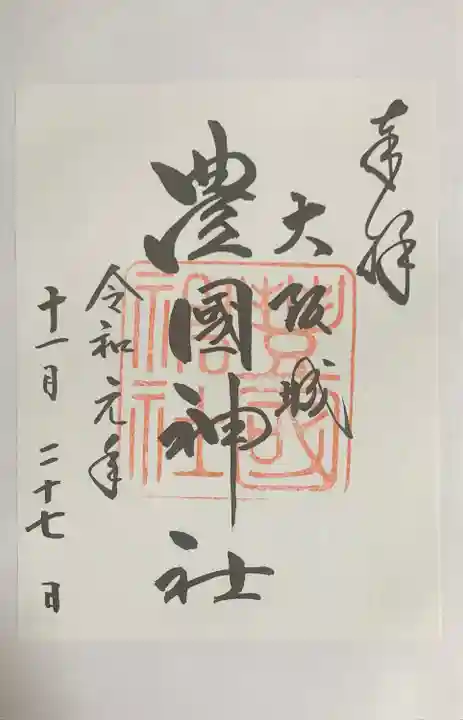 奉拝
大阪城
豊國神社
令和元年
十一月二十七日
豊國神社